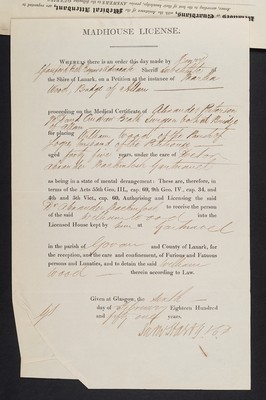 MADHOUSE LICENSE.
WHEREAS there is an order this day made by
Sheriff Substitute of
the Shire of Lanark, on a Petition at the instance of
Wood Bridge of Allan
proceeding on the Medical Certificate of Alexander Paterson
Bridge
of Allan
for placing William Wood of the Parish of
husband of the Petitioner
aged forty five years, under the care of Doctor
Alexander Mackintosh Gartnavel
as being in a state of mental derangement: These are, therefore, in
terms of the Acts 55th Geo. III., cap. 69, 9th Geo. IV., cap. 34, and
4th and 5th Vict., cap. 60, Authorizing and Licensing the said
Dr Alexander Mackintosh to receive the person
of the said William Wood into the
Licensed House kept by him at Gartnavel
in the parish of Govan and County of Lanark, for
the reception, and the care and confinement, of Furious and Fatuous
persons and Lunatics, and to detain the said William
Wood therein according to Law.
Given at Glasgow, the
day of Eighteen Hundred
and fifty one years.